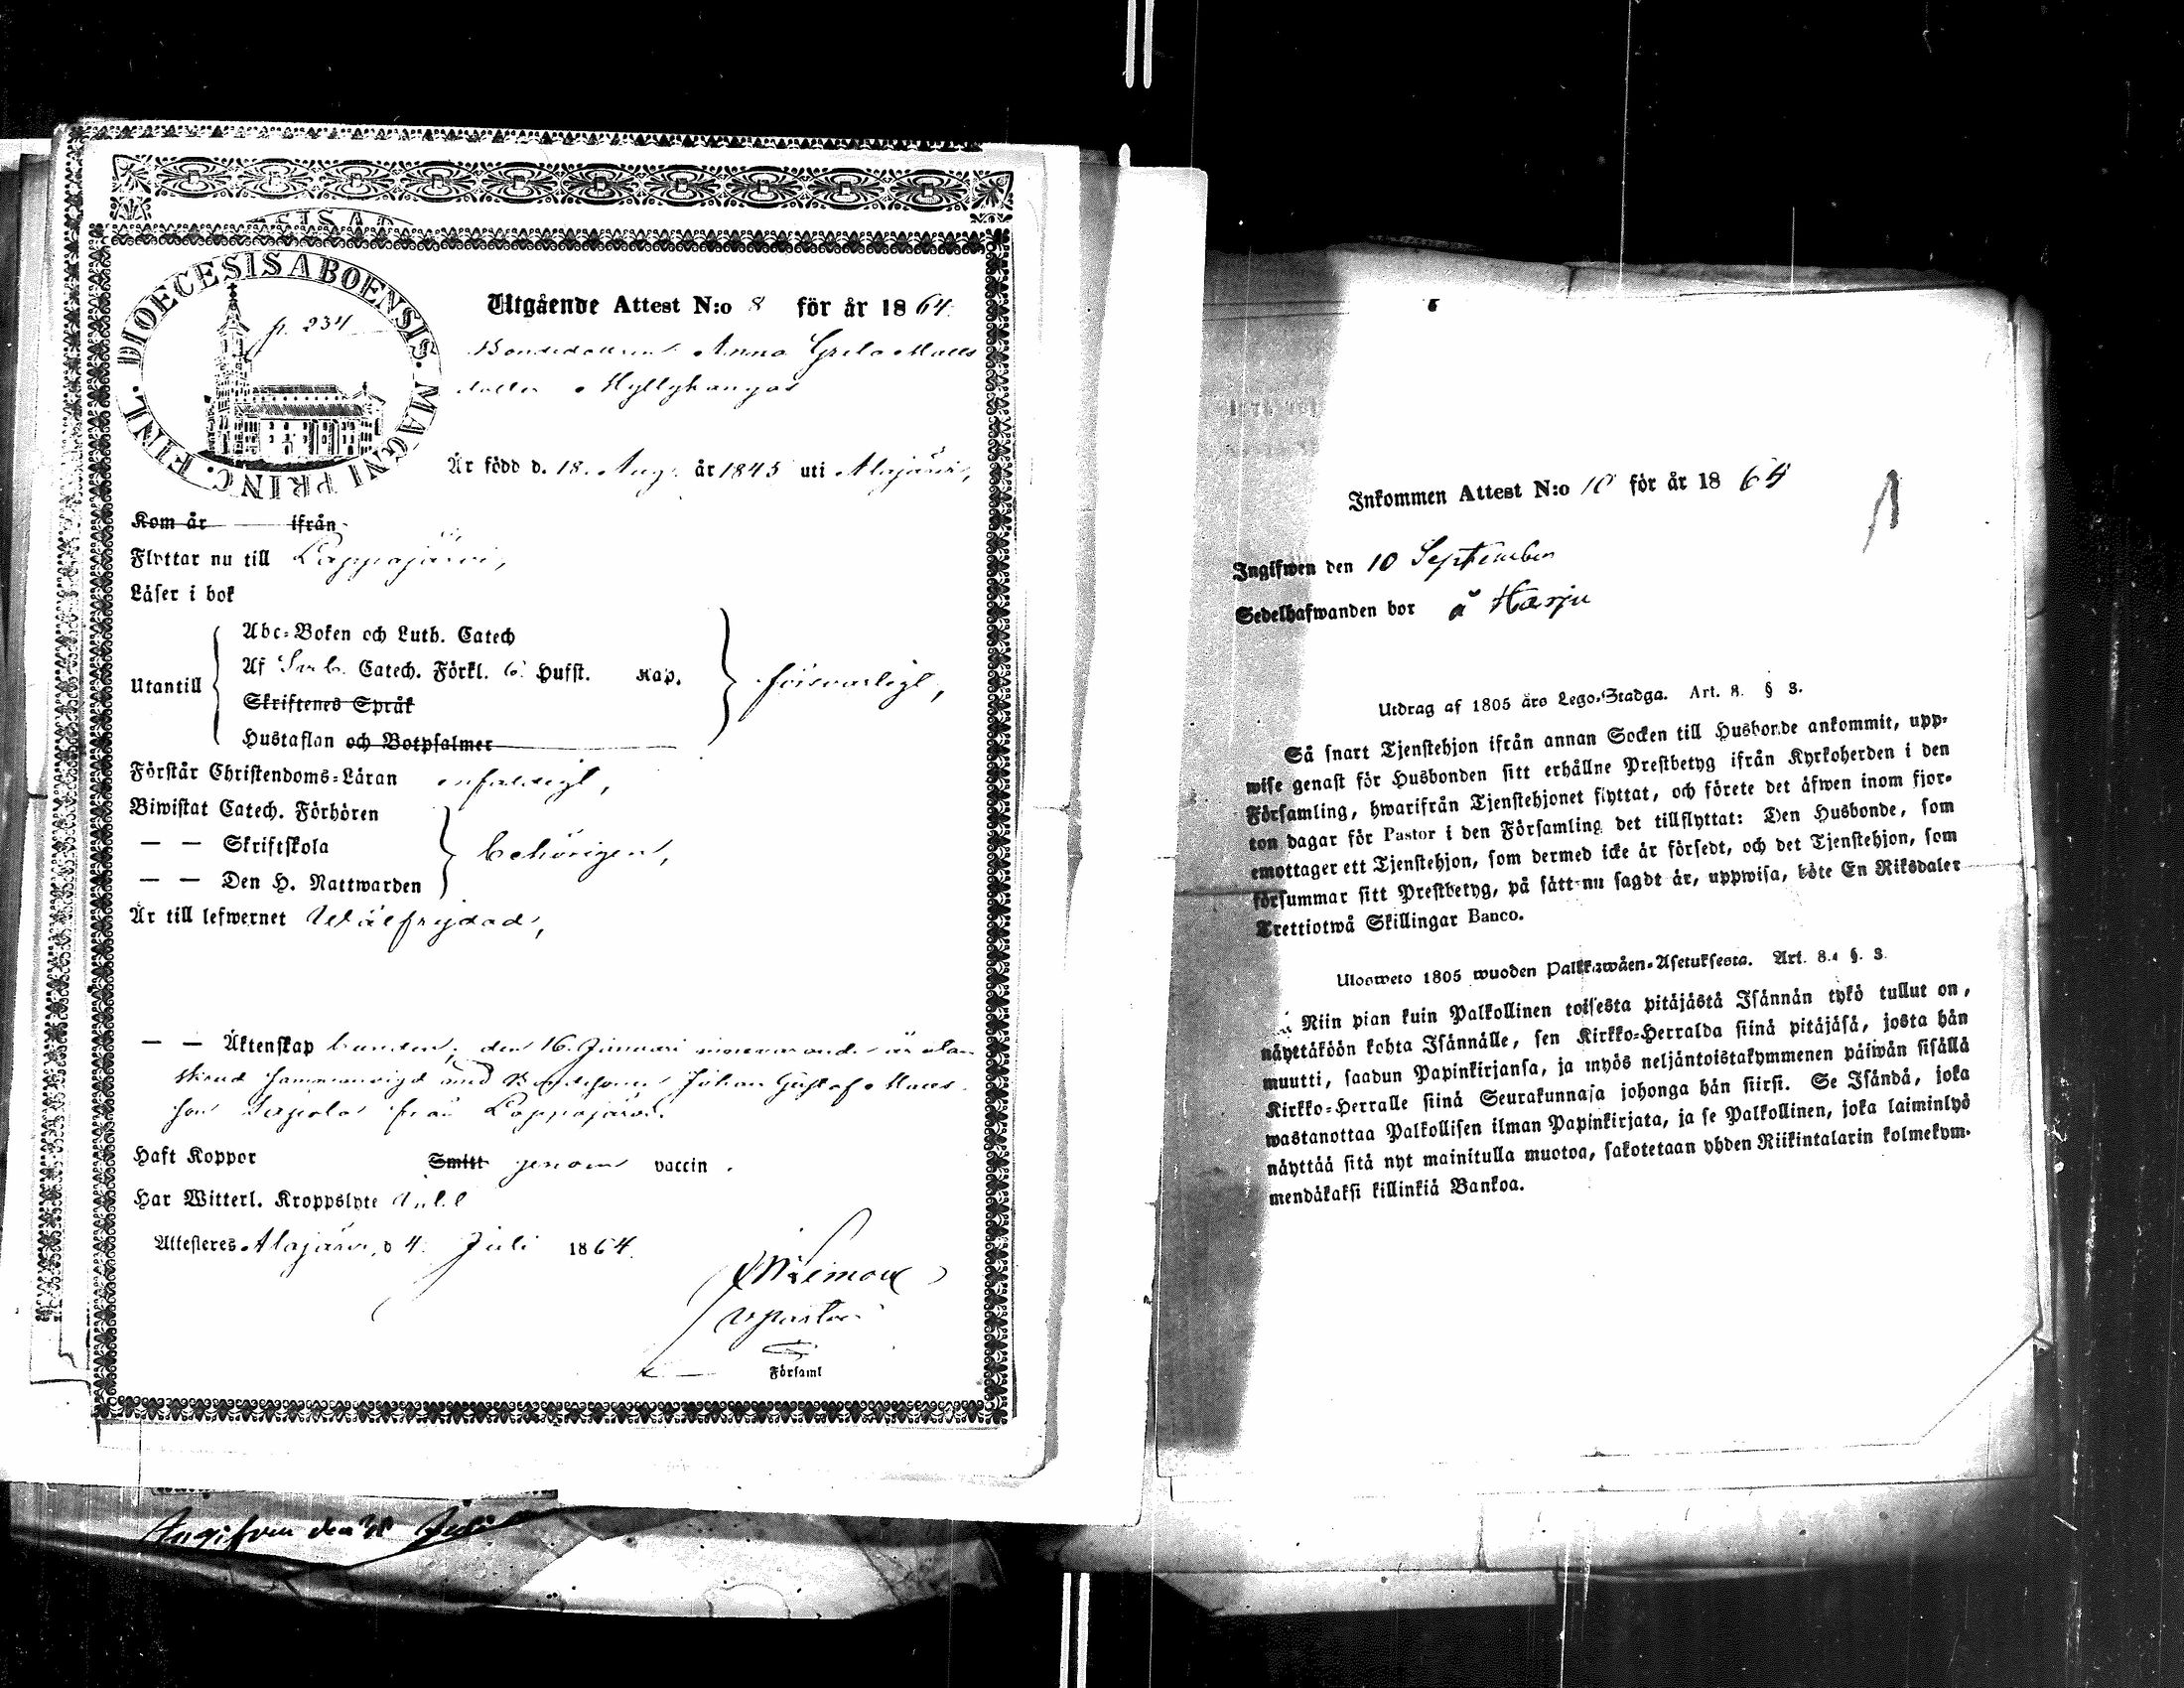 DIOECESIS ABOENSIS. MAGNI PRINC. FINL.
p. 234
Utgående Attest N:o 8 för år 1864.
Bondedottren Anna Greta Matts
dotter Hyllykangas
Är född d. 18. Aug. år 1845 uti Alajärvi,
Kom år ifrån
Flyttar nu till Lappajärvi,
Läser i bok
Abc-Boken och Luth. Catech
Utantill
Af Sveb. Catech. Förkl. 6 Hufst. Kap.
försvarligt,
Skriftenes Språk
Hustaflan och Botpsalmer
Förstår Christendoms-Läran enfaldigt,
Biwistat Catech. Förhören
— — Skriftskola
behörigen,
— — Den H. Nattwarden
Är till lefwernet Wälfrejdad,
— — Äktenskap bunden; den 16. Januari innevarande år
sammanvigd med Bondesonen Johan Gustaf Matts
son från Lappajärvi.
Haft Koppor Smitt genom vaccin.
Har Witterl. Kroppslyte
Attesteras Alajärvi, d 4. Juli 1864.
vpastor
Församl
Ingifven den Juli
Inkommen Attest N:o 10 för år 1864
1
Ingifwen den 10 September
Sedelhafwanden bor å Harju
Utdrag af 1805 års Lego-Stadga. Art. 8. § 3.
Så snart Tjenstehjon ifrån annan Socken till Husbonde ankommit, upp-
wise genast för Husbonden sitt erhållne Prestbetyg ifrån Kyrkoherden i den
Församling, hwarifrån Tjenstehjonet flyttat, och förete det äfwen inom fjor-
ton dagar för Pastor i den Församling det tillflyttat: Den Husbonde, som
emottager ett Tjenstehjon, som dermed icke är försedt, och det Tjenstehjon, som
försummar sitt Prestbetyg, på sätt nu sagdt är, uppwisa, böte En Riksdaler
Trettiotwå Skillingar Banco.
Ulosweto 1805 wuoden Palkkawäen-Asetuksesta. Art. 8. §. 3.
Niin pian kuin Palkollinen toisesta pitäjästä Isännän tykö tullut on,
näyttäköön kohta Isännälle, sen Kirkko-Herralda siinä pitäjäsä, josta hän
muutti, saadun Papinkirjansa, ja myös neljäntoistakymmenen päiwän sisällä
Kirkko-Herralle siinä Seurakunnasa johonga hän siirsi. Se Isändä, joka
wastanottaa Palkollisen ilman Papinkirjata, ja se Palkollinen, joka laiminlyö
näyttää sitä nyt mainitulla muotoa, sakotetaan yhden Riikintalarin kolmekym-
mendäkaksi killinkiä Bankoa.